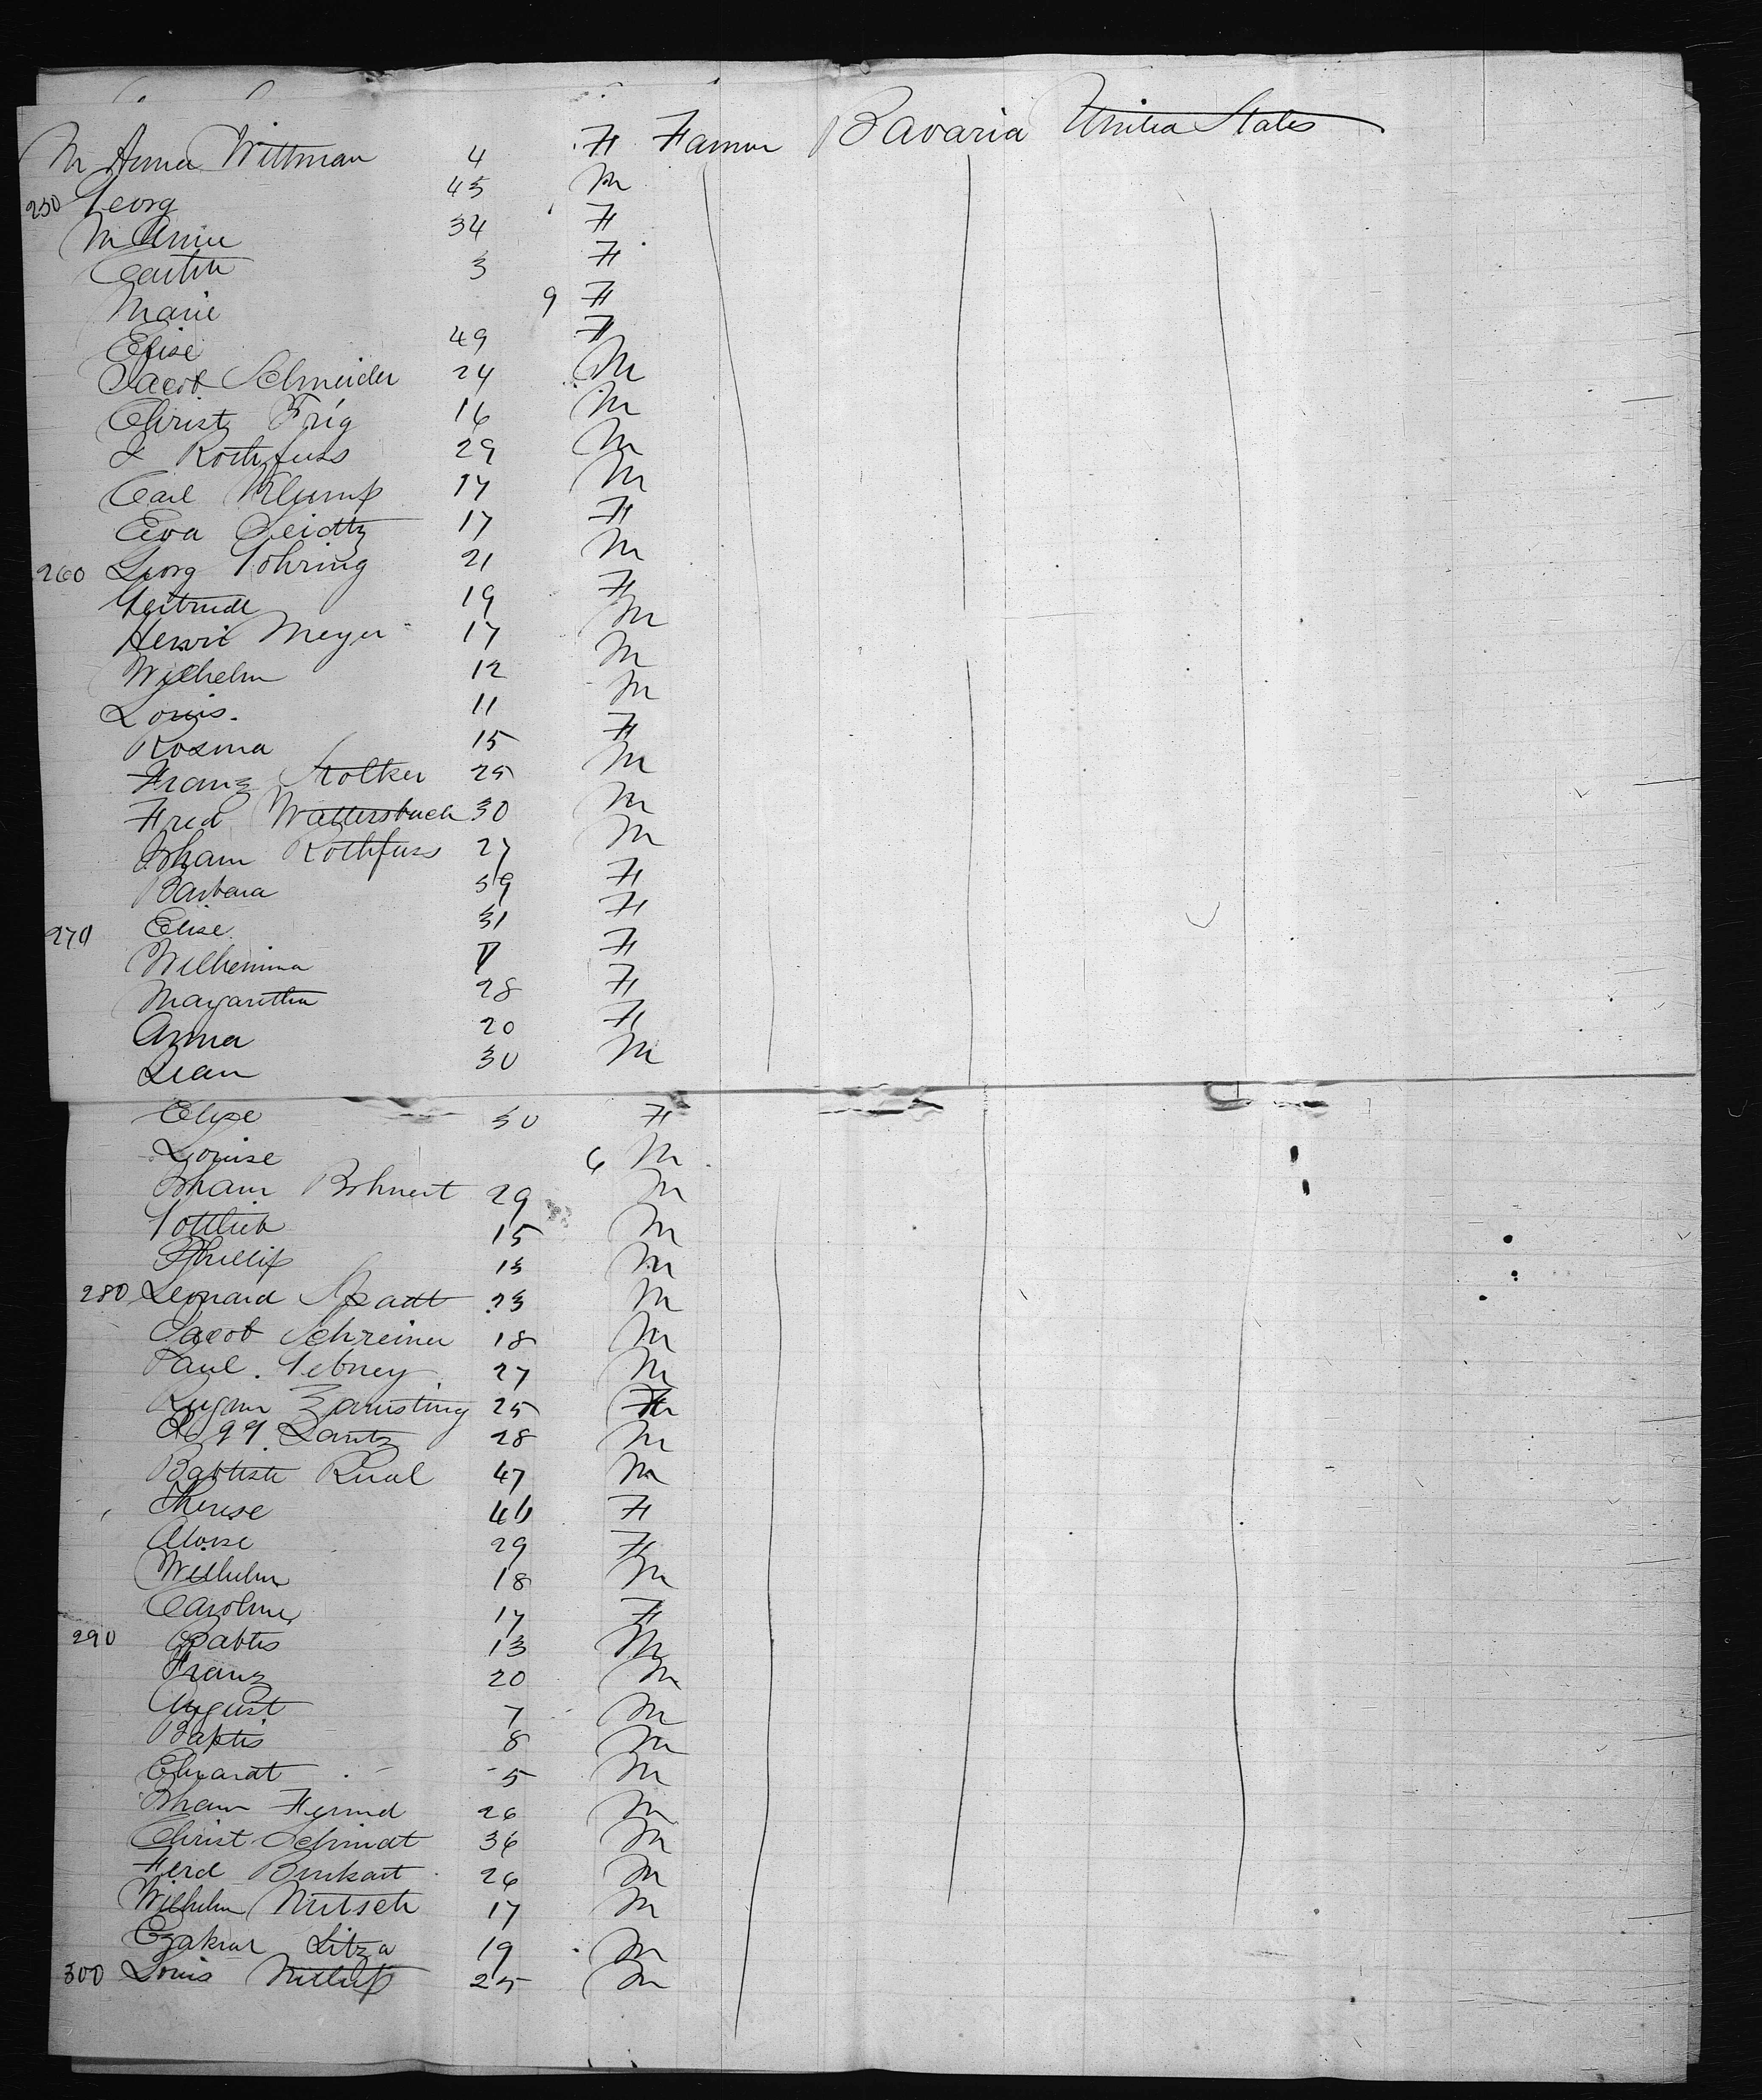 M Anna Wittman 4 F Farmer Bavaria United States
250 Georg 45 M
M Annie 34 F
3 F
Marie 9 F
Elise 49 F
Jacob Schneider 24 M
Christ Frig 16 M
J Rothfuss 29 M
Carl Klump 17 M
Eva Seidtz 17 F
260 Georg Göhring 21 M
Gertrude 19 F
Henri Meyer 17 M
Wilhelm 12 M
Louis. 11 M
Rosina 15 F
Franz Stolker 25 M
Fred Wattersbach 30 M
Joham Rothfuss 27 M
Barbara 59 F
270 Elise 31 F
Wilhemina F
Magaretha 28 F
Anna 20 F
Lean 30 M
Elise 30 F
Louise 6 M
Joham Bohnert 29 M
Gottlieb 15 M
Phillip 13 M
280 Leonard Spadt 23 M
Jacob Schreiner 18 M
Paul. Gebney 27 M
Zarusting 25
Lantz 28 M
Babtiste Rual 47 M
Therese 46 F
Aloise 29 F
Wilhelm 18 M
Caroline 17 F
290 Babtis 13 M
Franz 20 M
August 7 M
Baptis 8 M
Eduardt 5 M
Joham 26 M
Christ Schmidt 36 M
Ferd Burkart 26 M
Wilhelm Mutsch 17 M
Litza 19 M
300 Louis 25 M